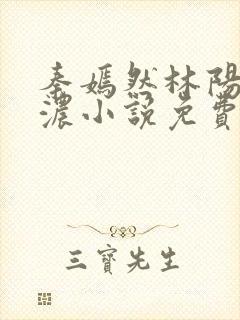 秦嫣然林陽
濃小說免費
三寶先生